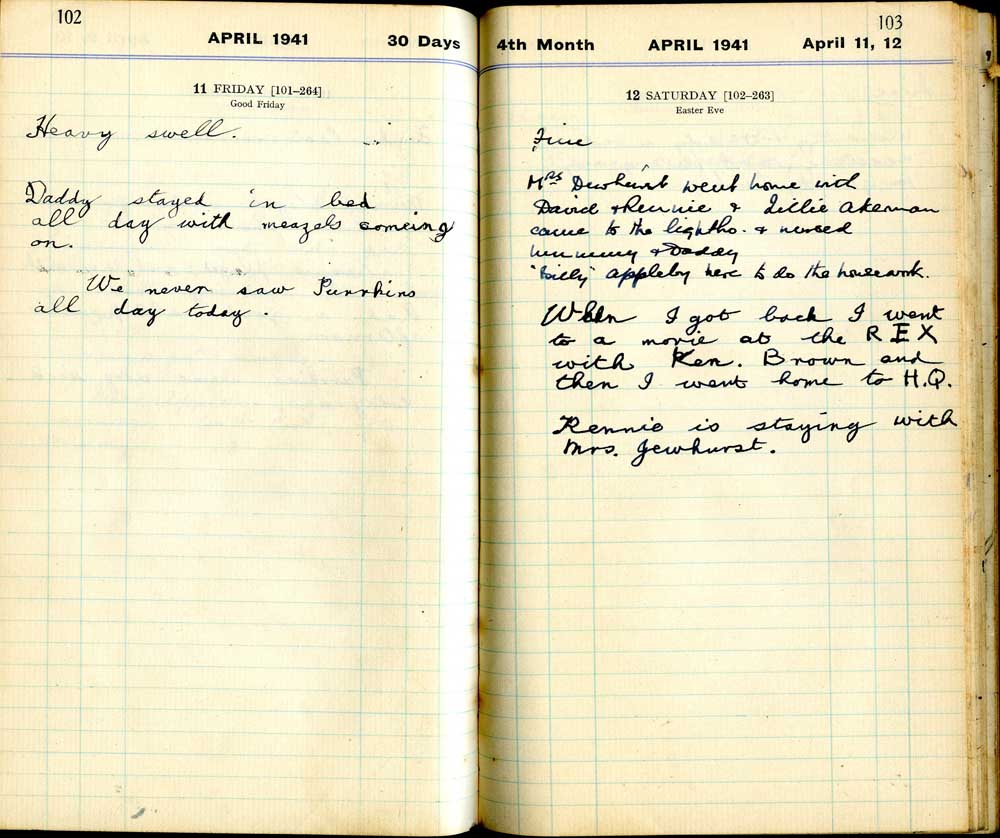 102
APRIL 1941 30 Days
11 FRIDAY [101–264]
Good Friday
Heavy swell.
Daddy stayed in bed
all day with meazels comeing
on.
We never saw Purrkins
all day today.
103
4th Month APRIL 1941 April 11, 12
12 SATURDAY [102–263]
Easter Eve
Fine
Mrs Dewhurst went home with
David & Rennie & Lillie Akerman
came to the lightho. & nursed
mummy & Daddy
"Billy" Appleby here to do the housework.
When I got back I went
to a movie at the REX
with Ken. Brown and
then I went home to H.Q.
Rennie is staying with
Mrs. Jewhurst.